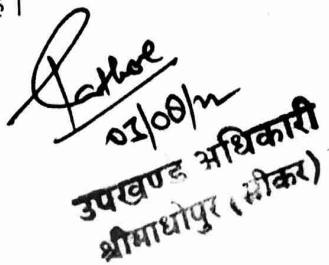 है।
03/08/22
उपखण्ड अधिकारी
श्रीमाधोपुर (सीकर)